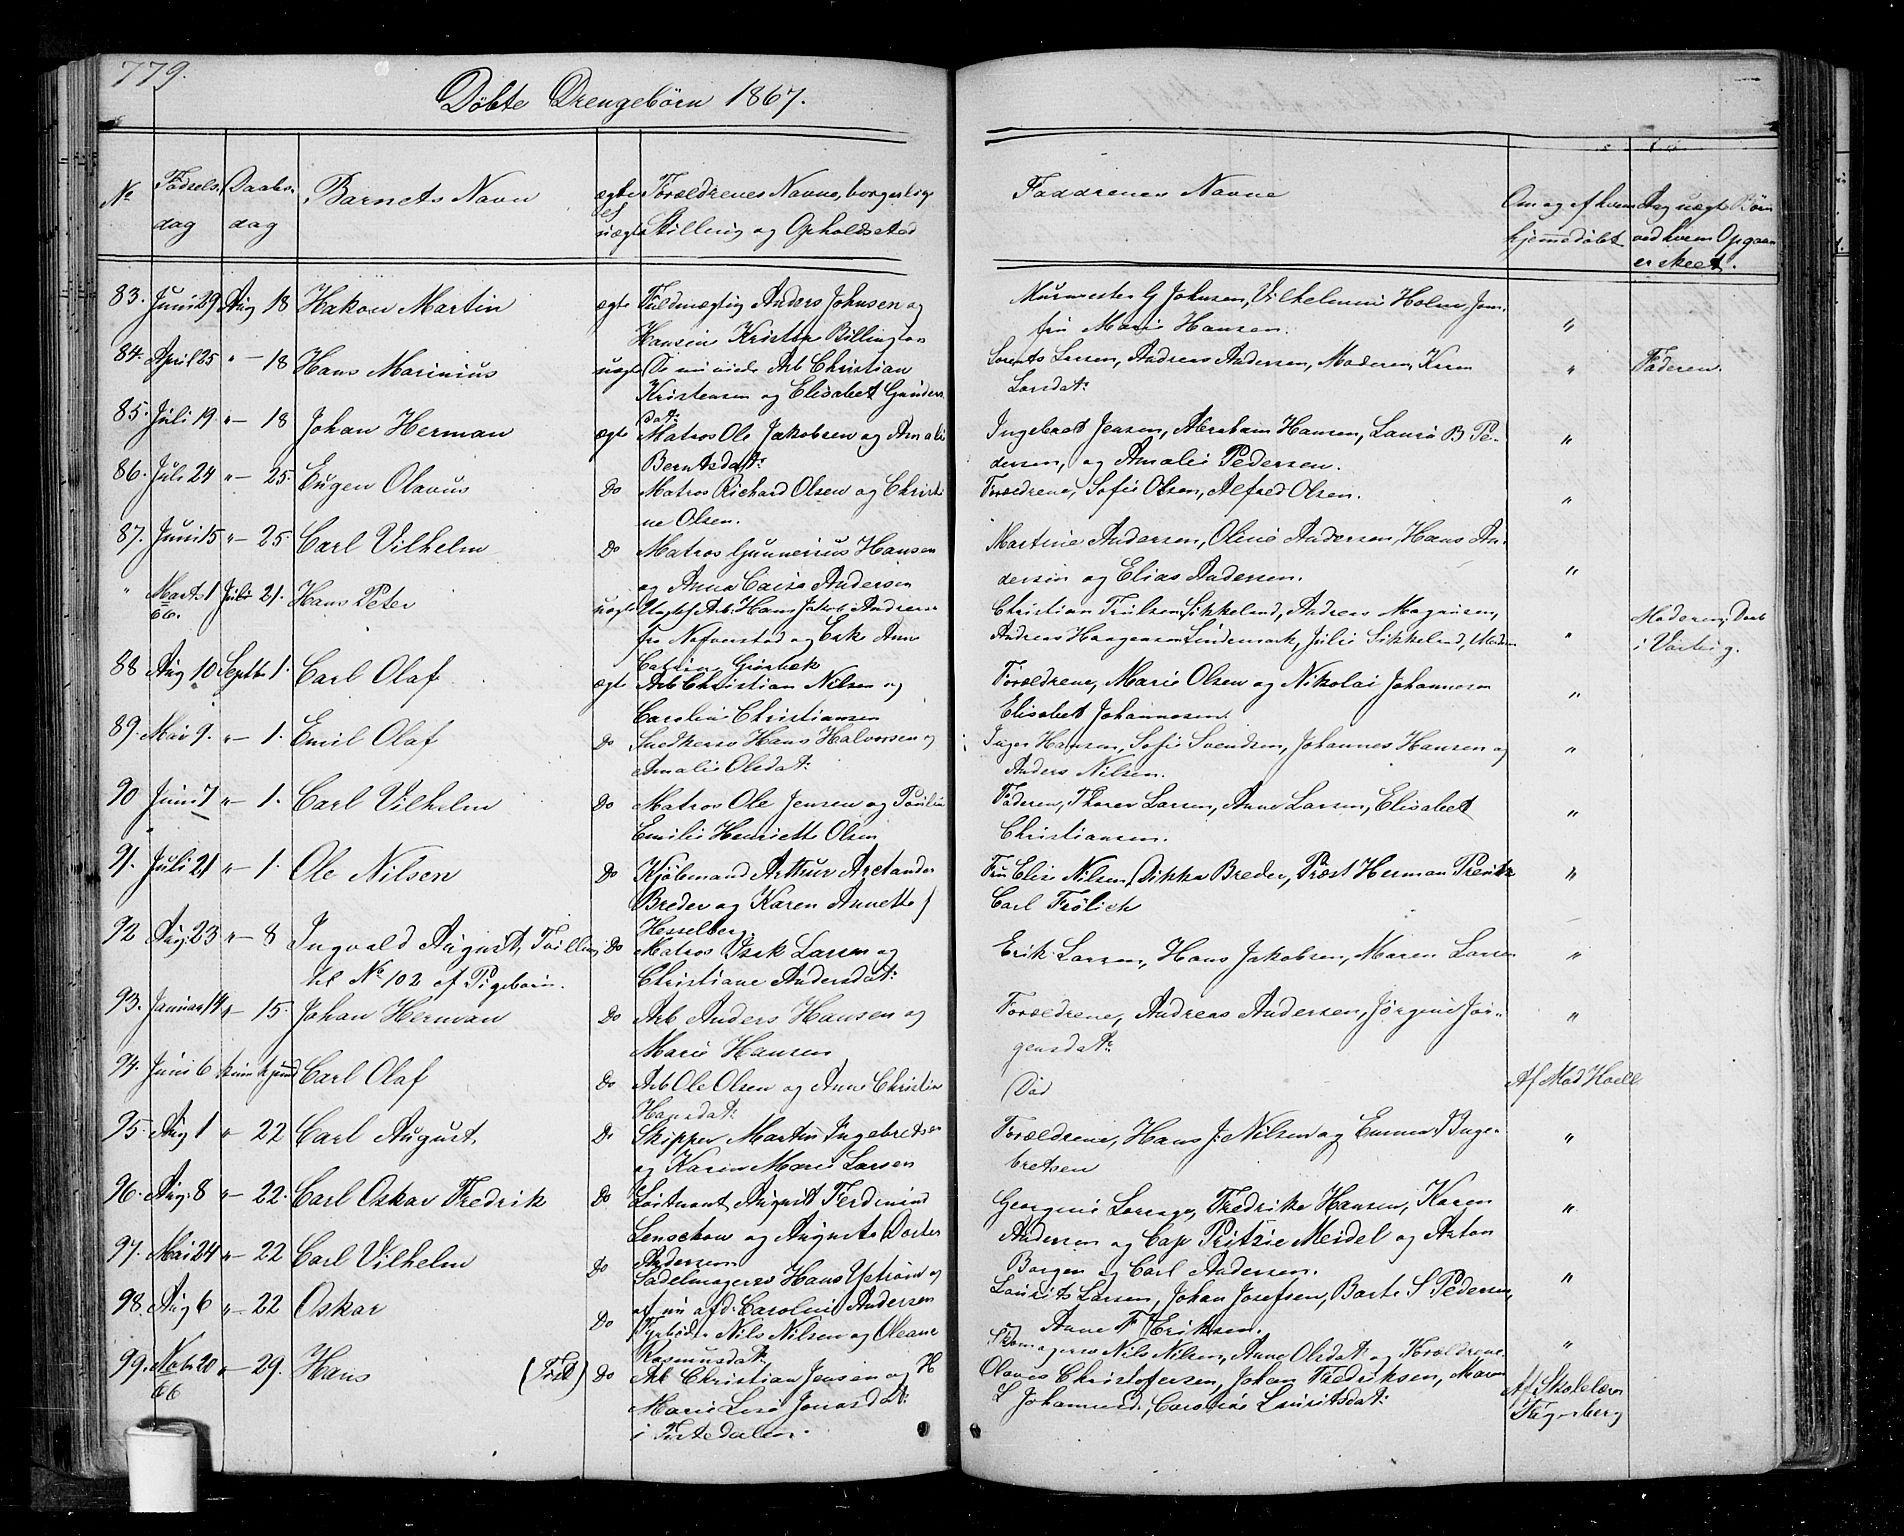 779.
Döbte Drengebörn 1867.
No Fødsels Daabs Barnets Navn ægte Forældrenes Navne, borgerlig Faddrenes Navne Om og af hvem Ang uægte Börn
dag dag uægte Stilling og Opholdssted hjemmedøbt ved hvem Opgaven
er skeet.
83. Juni 29 Aug 18 Hakon Martin ægte Fuldmægtig Anders Johnsen og Murmester G Johnsen, Vilhelmine Holm, Jom
Hansine Kristine Billington fru Marie Hansen. "
84. April 25 " - 18 Hans Marinius uægte Arb Christian Lorents Larsen, Andreas Andersen, Moderen, Karen " Faderen.
Kristensen og Elisabet Gunders Larsdat:
dat:
85. Juli 19. " - 18 Johan Herman ægte Matros Ole Jakobsen og Amalie Ingebret Jensen, Abraham Hansen, Laura B Pe-
Berntsdat: dersen, og Amalie Pedersen. "
86. Juli 24 " - 25. Eugen Olavus Do Matros Richard Olsen og Christi Forældrene, Sofie Olsen, Alfred Olsen. "
ne Olsen.
87. Juni 15 " - 25. Carl Vilhelm Do Matros Gunnerius Hansen Martine Andersen, Oline Andersen, Hans An-
og Anna Caisa Andersen dersen og Elias Andersen. "
" Marts 1 Juli 21. Hans Peter uægte Arb. Hans Jakob Andreas Christian Trulsen Sikkeland, Andreas Magnusen,
66. fra Nafvestad og Anne Andreas Haagensen Lindemark, Julie Sikkeland, " Moderen, Døbt
Catrin i Varteig.
88 Aug 10 Septb 1. Carl Olaf ægte Arb Christian Nilsen og Forældrene, Marie Olsen og Nikolai Johannesen "
Caroline Christiansen Elisabet Johannesen.
89. Mai 9. " - 1. Emil Olaf Do Snedkersv Hans Halvorsen og Inger Hansen, Sofie Svendsen, Johannes Hansen og "
Amalie Olsdat: Anders Nilsen.
90 Juni 7 " - 1. Carl Vilhelm Do Matros Ole Jensen og Pauline Faderen, Thorer Larsen, Anne Larsen, Elisabet "
Emilie Henriette Olsen Christiansen.
91. Juli 21 " - 1. Ole Nilsen Do Kjöbmand Arthur Arctander Fru Elise Nilsen, Dikka Breder, Præst Herman "
Breder og Karen Annette Carl Frölich
Hesselberg
92 Aug. 23 " - 8 Ingvald August, Tvilling Do Matros Larsen og Erik Larsen, Hans Jakobsen, Maren Larsen "
til No 102 af Pigebörn. Christiane Andersdat:
93. Januar 14 " - 15. Johan Herman Do Arb Anders Hansen og Forældrene, Andreas Andersen, Jörgine Jör- "
Marie Hansen gensdat:
94. Juni 6 Carl Olaf Do Arb Ole Olsen og Anne Christine Död Af Mad Hoell
Hansdat:
95. Aug 1 " 22 Carl August Do Skipper Martin Ingebretsen Forældrene, Hans J: Nilsen og Emma Inge- "
og Karen Marie Larsen bretsen
96. Aug. 8 " - 22. Carl Oskar Fredrik Do Löitnant August Ferdinand Georgine Lorange, Fredrikke Hansen, Karen "
Lenschow og Augusta Dortea Andersen og Cap Meidel og Anton
Andersen Borgen og Carl Andersen.
97. Mai 24 " - 22 Carl Vilhelm Do Sadelmagersv Hans og "
af nu afd: Caroline Andersen Laurits Larsen, Johan Josefsen, Berte S Pedersen,
98. Aug 6 " - 22 Oskar Do Fyrböder Nils Nilsen og Oleane Anne F Eriksen.
Rasmusdat: Skomagersv Nils Nilsen, Anne Olsdat: og Forældrene. "
99. Nov. 20 " - 29. Hans (Fös) Do Arb Christian Jensen og H Olaves Christofersen, Johan Fredriksen, Maren Af Skolelærer
66 Marie Lise Jonasdat: L Johannesd:, Caroline Lauritsdat: Fagerberg
i Tistedalen.